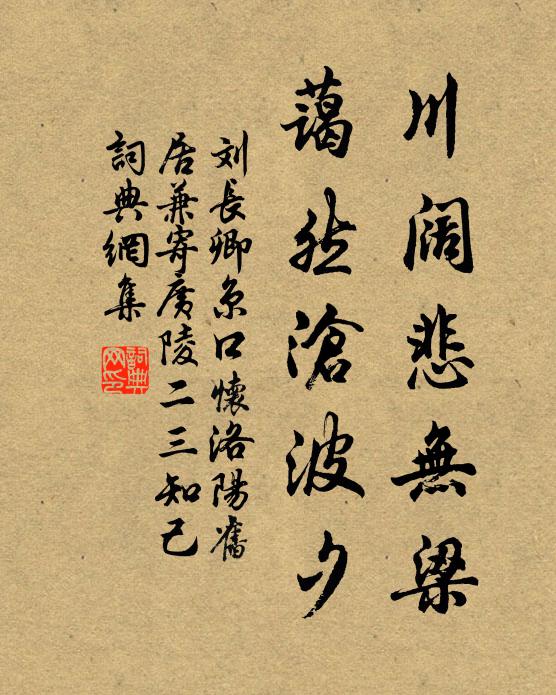 川阔悲無梁
蔼然滄波夕
刘長卿京口懷洛陽舊
居兼寄廣陵二三知己
詞典網集
詞典网印